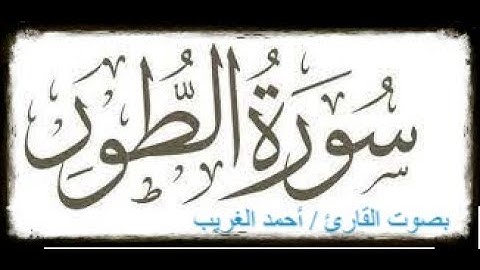 سُورَةُ الطُّورِ
بصوت القارئ / أحمد الغريب